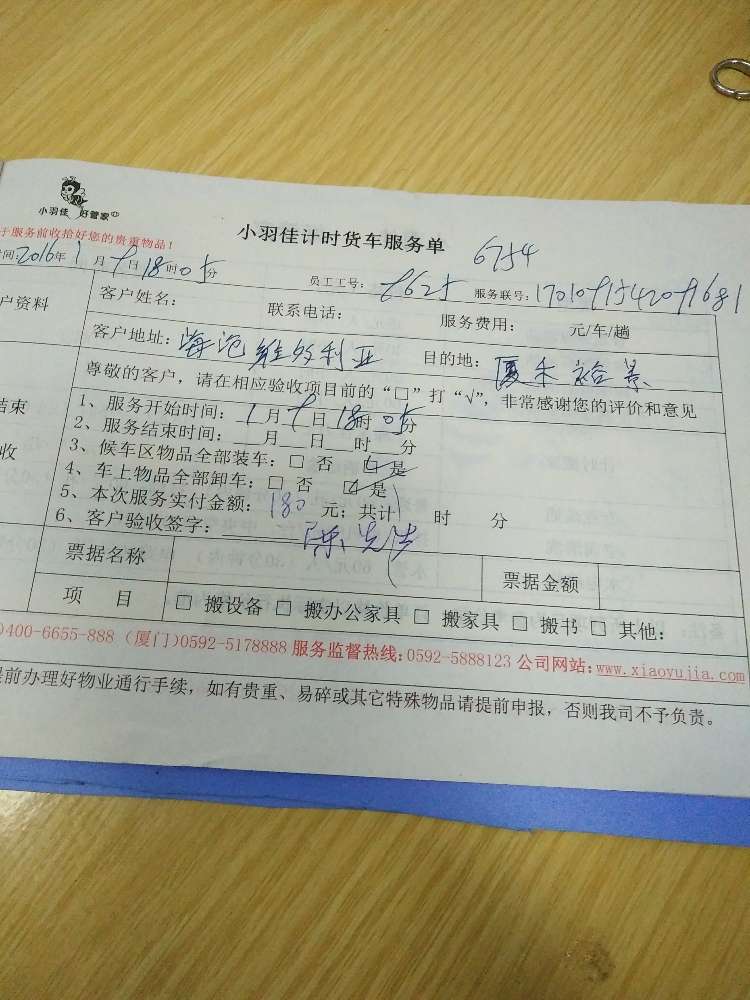 小羽佳 好管家
于服务前收拾好您的贵重物品！
小羽佳计时货车服务单 6754
时间：2016年1月9日18时05分 员工工号： 8625 服务联号：
户资料
客户姓名： 联系电话： 服务费用： 元/车/趟
客户地址：海沧维多利亚 目的地：厦禾裕景
尊敬的客户，请在相应验收项目前的“□”打“√”，非常感谢您的评价和意见
结束
收
1、服务开始时间：1月9日18时05分
2、服务结束时间： 月 日 时 分
3、候车区物品全部装车：□ 否 ☑ 是
4、车上物品全部卸车：□ 否 ☑ 是
5、本次服务实付金额：180元；共计 时 分
6、客户验收签字：
票据名称 票据金额
项 目 □ 搬设备 □ 搬办公家具 □ 搬家具 □ 搬书 □ 其他：
0400-6655-888（厦门）0592-5178888 服务监督热线：0592-5888123 公司网站：www.xiaoyujia.com
提前办理好物业通行手续，如有贵重、易碎或其它特殊物品请提前申报，否则我司不予负责。